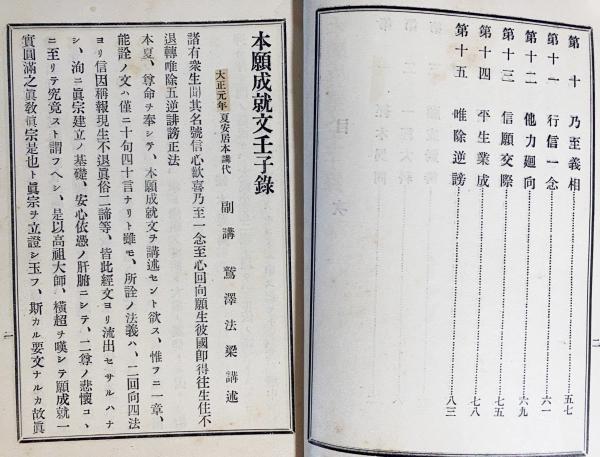 第十 乃至義相 五七
第十一 行信一念 六一
第十二 他力廻向 六九
第十三 信願交際 七五
第十四 平生業成 七八
第十五 唯除逆謗 八三
二
本願成就文壬子錄
大正元年夏安居本講代
副講 鷲澤法梁講述
諸有衆生聞其名號信心歡喜乃至一念至心回向願生彼國卽得往生住不
退轉唯除五逆誹謗正法
本夏、尊命ヲ奉シテ、本願成就文ヲ講述セント欲ス、惟フニ一章、
能詮ノ文ハ僅ニ十句四十言ナリト雖モ、所詮ノ法義ハ、二回向四法
ヨリ信因稱報現生不退眞俗二諦等、皆此經文ヨリ流出セサルハナ
シ、洵ニ眞宗建立ノ基礎、安心依憑ノ肝腑ニシテ、二尊ノ悲懷コヽ
ニ至リテ究竟スト謂フヘシ、是以高祖大師、橫超ヲ嘆シテ願成就一
實圓滿之眞敎眞宗是也ト眞宗ヲ立證シ玉フ、斯カル要文ナルカ故眞
一